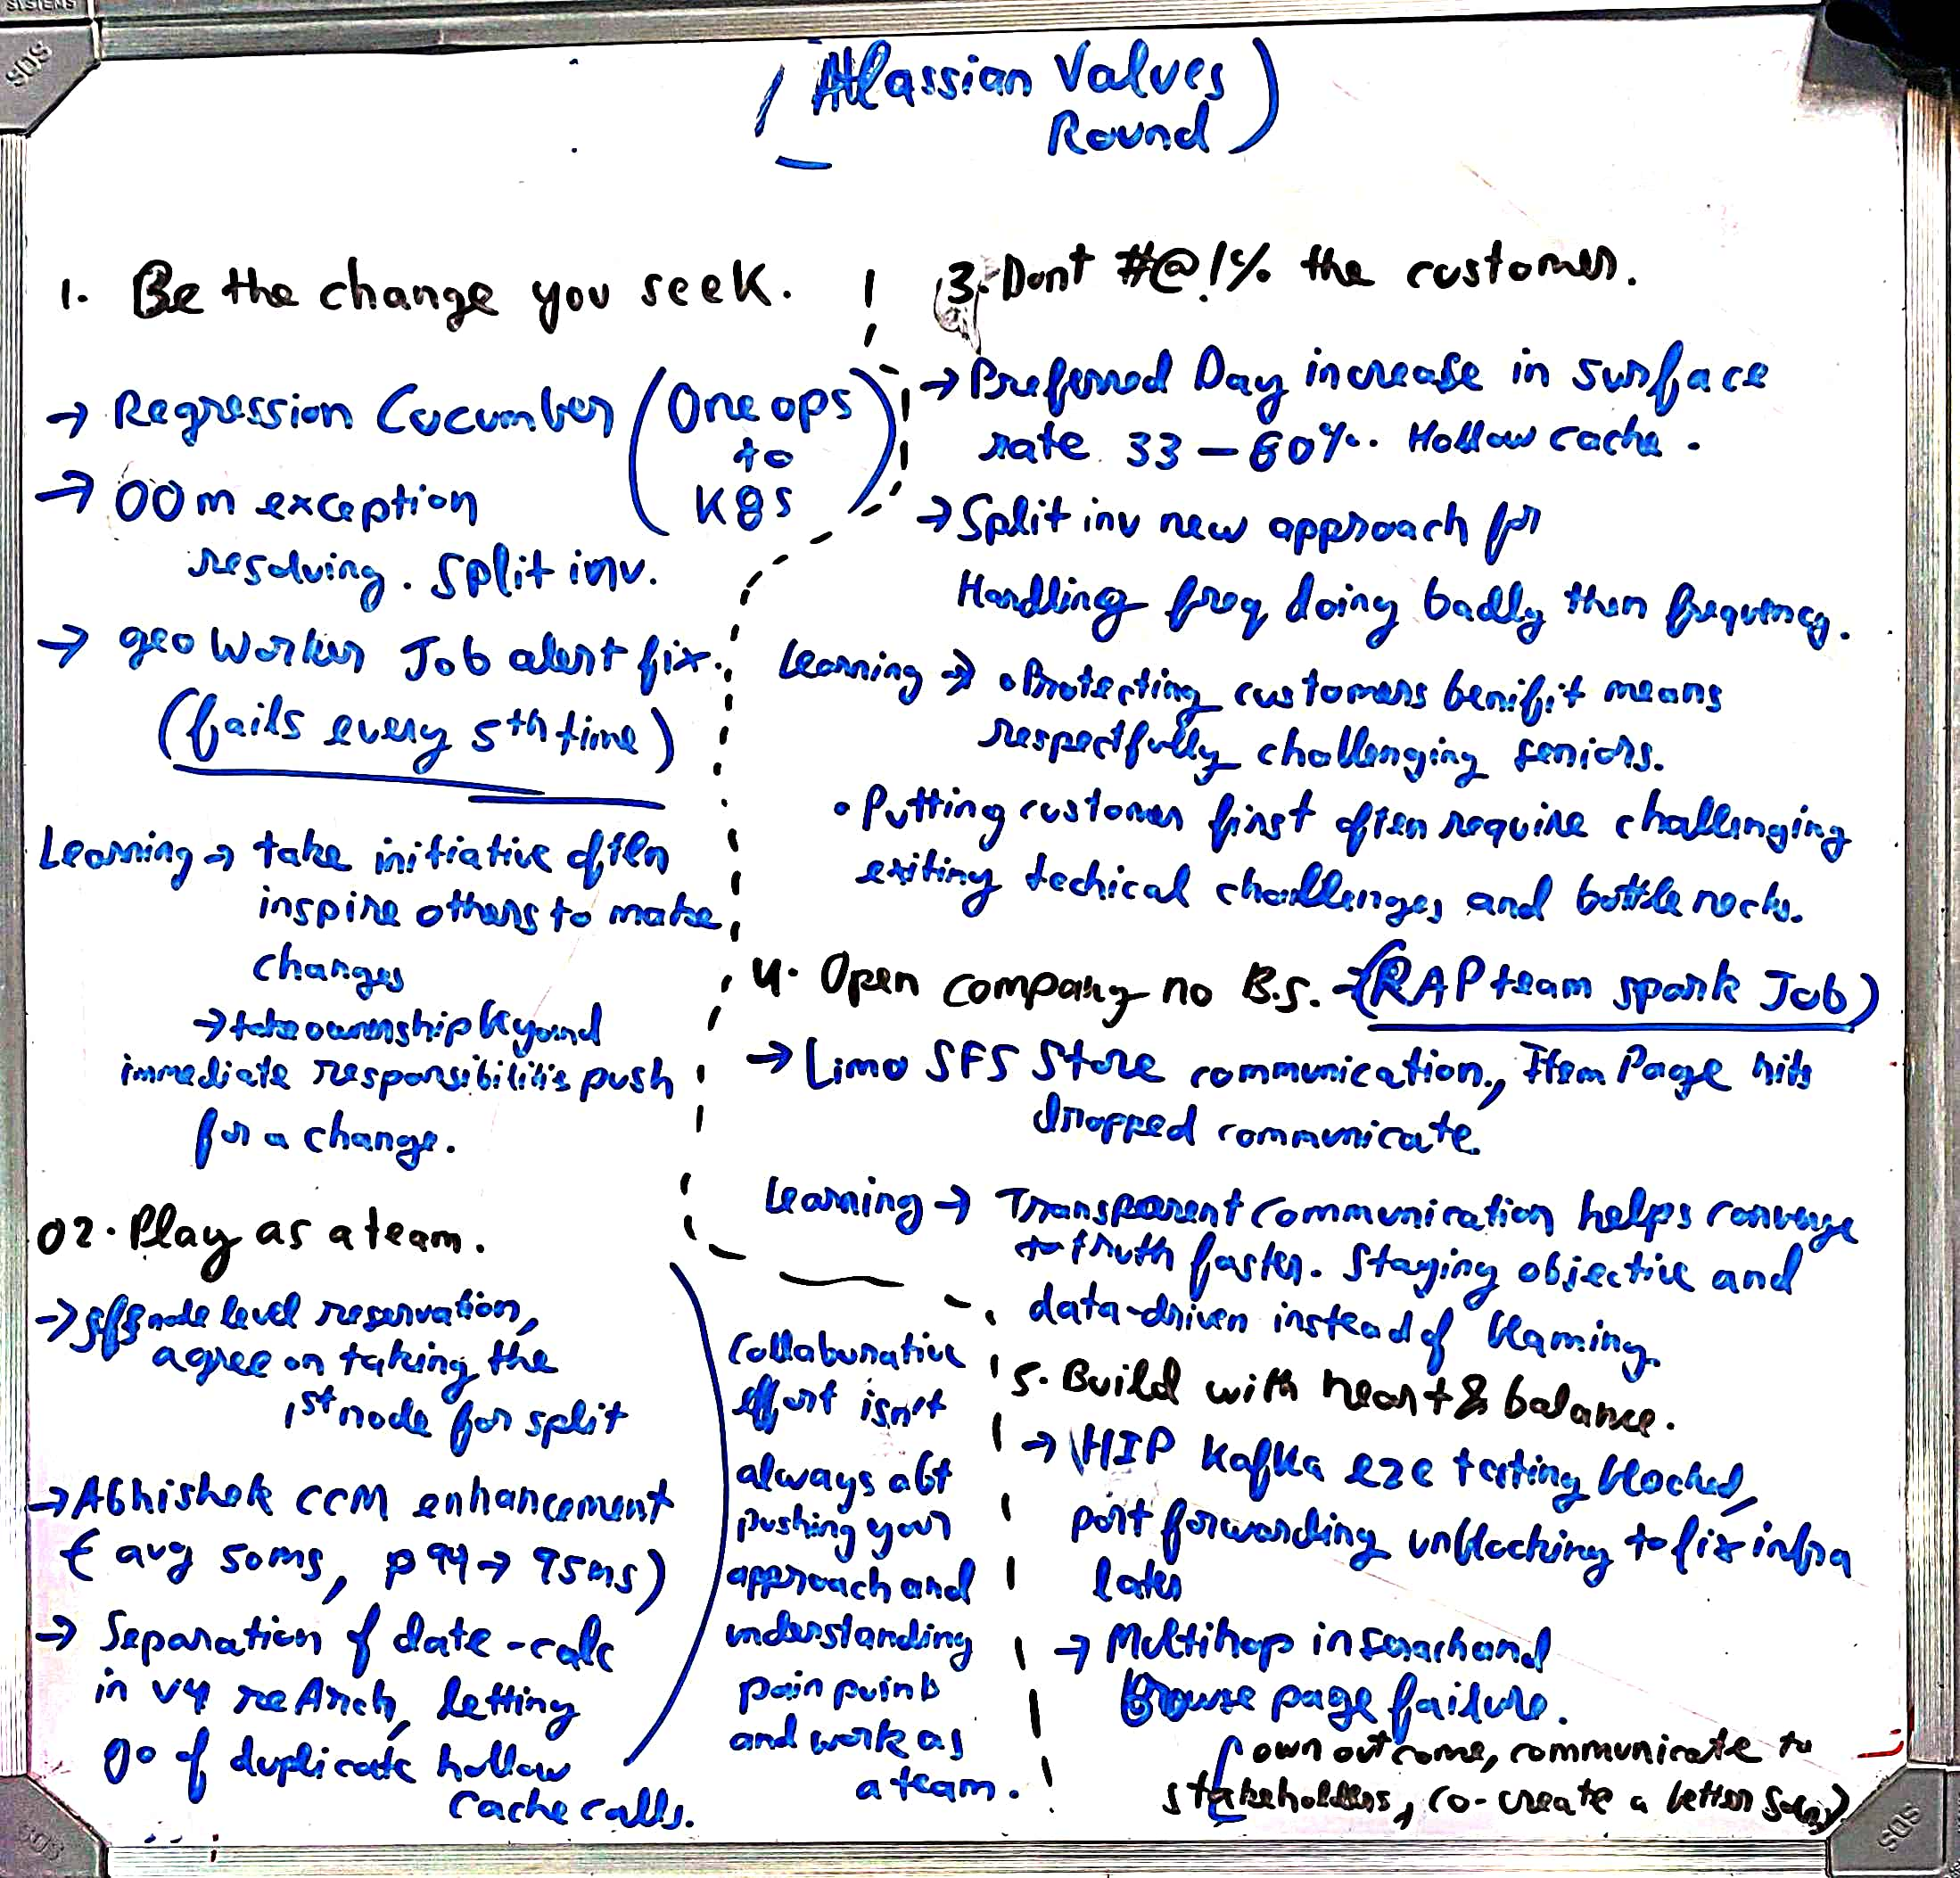 (Atlassian Values
Round)
1. Be the change you seek.
→ Regression Cucumber (One ops
to
K8s)
→ OOm exception
resolving. Split inv.
→ geo Worker Job alert fix.
(fails every 5th time)
Learning → take initiative often
inspire others to make
changes
→ take ownership beyond
immediate responsibilities push
for a change.
02. Play as a team.
→ node level reservation,
agree on taking the
1st node for split
→ Abhishek CCM enhancement
(avg 50ms, p99 → 95ms)
→ Separation of date-calc
in v4 reArch, letting
go of duplicate hollow
cache calls.
Collaborative
effort isn't
always abt
pushing your
approach and
understanding
pain points
and work as
a team.
3. Dont #@!% the customer.
→ Preferred Day increase in surface
rate 33 – 60%. Hollow cache.
→ Split inv new approach for
Handling freq doing badly then frequency.
Learning → • Protecting customers benifit means
respectfully challenging seniors.
• Putting customer first often require challenging
exiting techical challenges and bottle necks.
4. Open company no B.S. - (RAP team spark Job)
→ Limo SFS Store communication, Item Page hits
dropped communicate.
Learning → Transparent communication helps converge
to truth faster. Staying objective and
data-driven instead of blaming.
5. Build with heart & balance.
→ HIP Kafka e2e testing blocked,
port forwarding unblocking to fix infra
later
→ Multihop in search and
Browse page failure.
(own outcome, communicate to
stakeholders, co-create a better